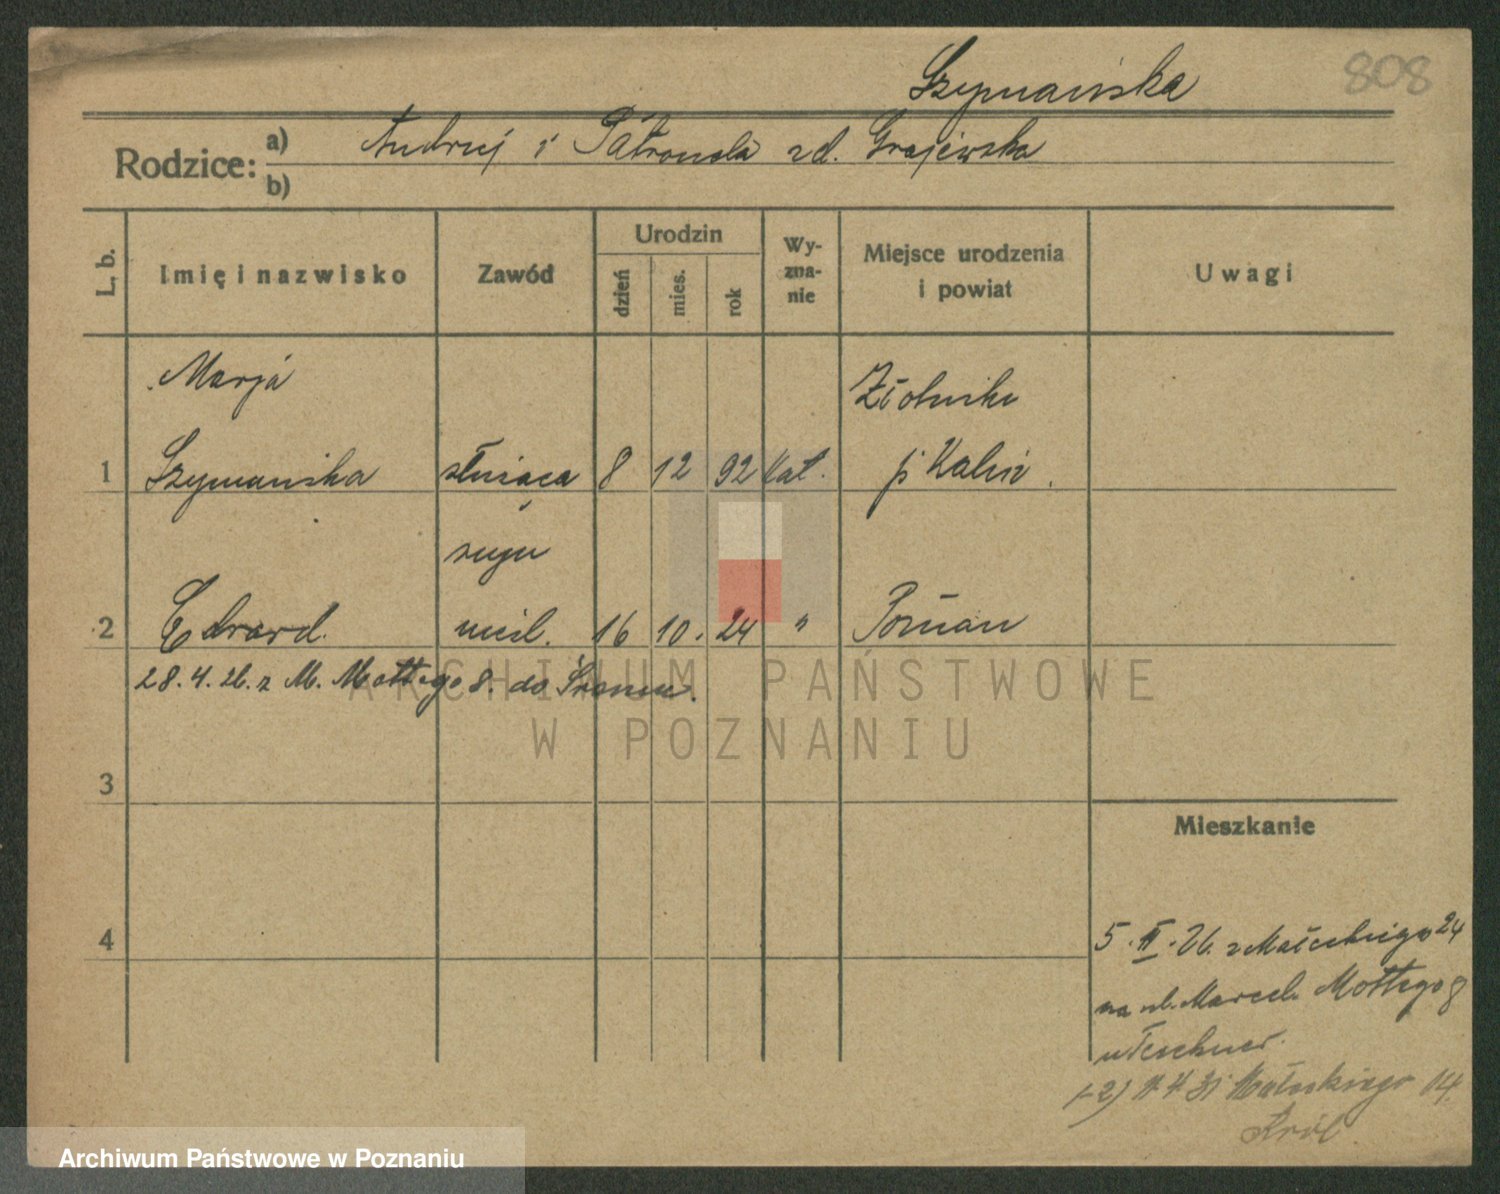 808
Szymańska
Rodzice:
a) Andrzej i Petronela zd. Grajewska
b)
L. b.
Imię i nazwisko
Zawód
Urodzin
dzień
mies.
rok
Wy-
zna-
nie
Miejsce urodzenia
i powiat
Uwagi
Marja
Złotniki
1 Szymańska służąca 8 12 92 kat. p. Kalisz.
2 Edward nieśl. 16 10. 24 " Poznań
28.4.26. z M. Mottego 8. do Śremu.
3
Mieszkanie
4
5.II.26. z Małeckiego 24
na ul. Marcel. Mottego 8
u Teschner.
1-2) Małeckiego 14.
Król
ARCHIWUM PAŃSTWOWE
W POZNANIU
Archiwum Państwowe w Poznaniu